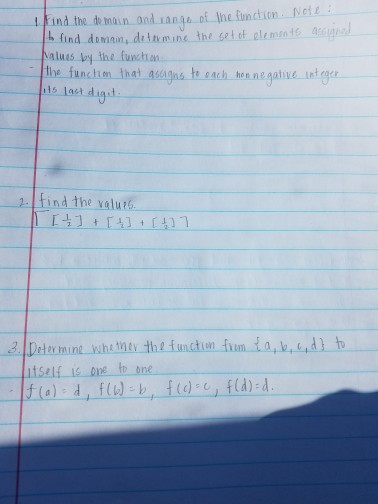 1. Find the domain and range of the function. Note:
to find domain, determine the set of elements assigned
values by the function.
- the function that assigns to each nonnegative integer
its last digit.
2. find the values.
⌈ [½] + ⌈½] + ⌈½⌉ ⌉
3. Determine whether the function from {a, b, c, d} to
itself is one to one
- f(a) = d, f(b) = b, f(c) = c, f(d) = d.